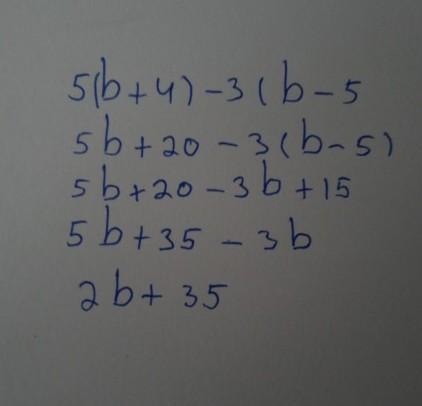 5(b+4) -3 ( b - 5
5b+20 - 3(b-5)
5b+20 - 3b +15
5b+35 - 3b
2b+ 35